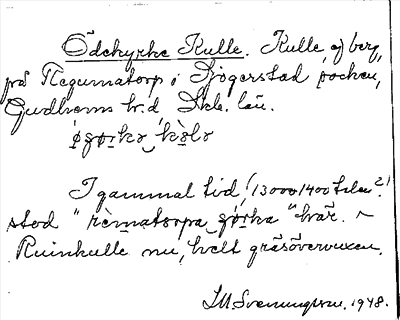 Ödekyrke Kulle. Kulle, ej berg,
på Regumatorp i Sjogerstad socken,
Gudhems h:d, Skb. län.
I gammal tid (1300 o 1400 talen?)
stod " rèmatorpa "här.
Ruinkulle nu, helt gräsövervuxen.
IM Svenungsson. 1948.